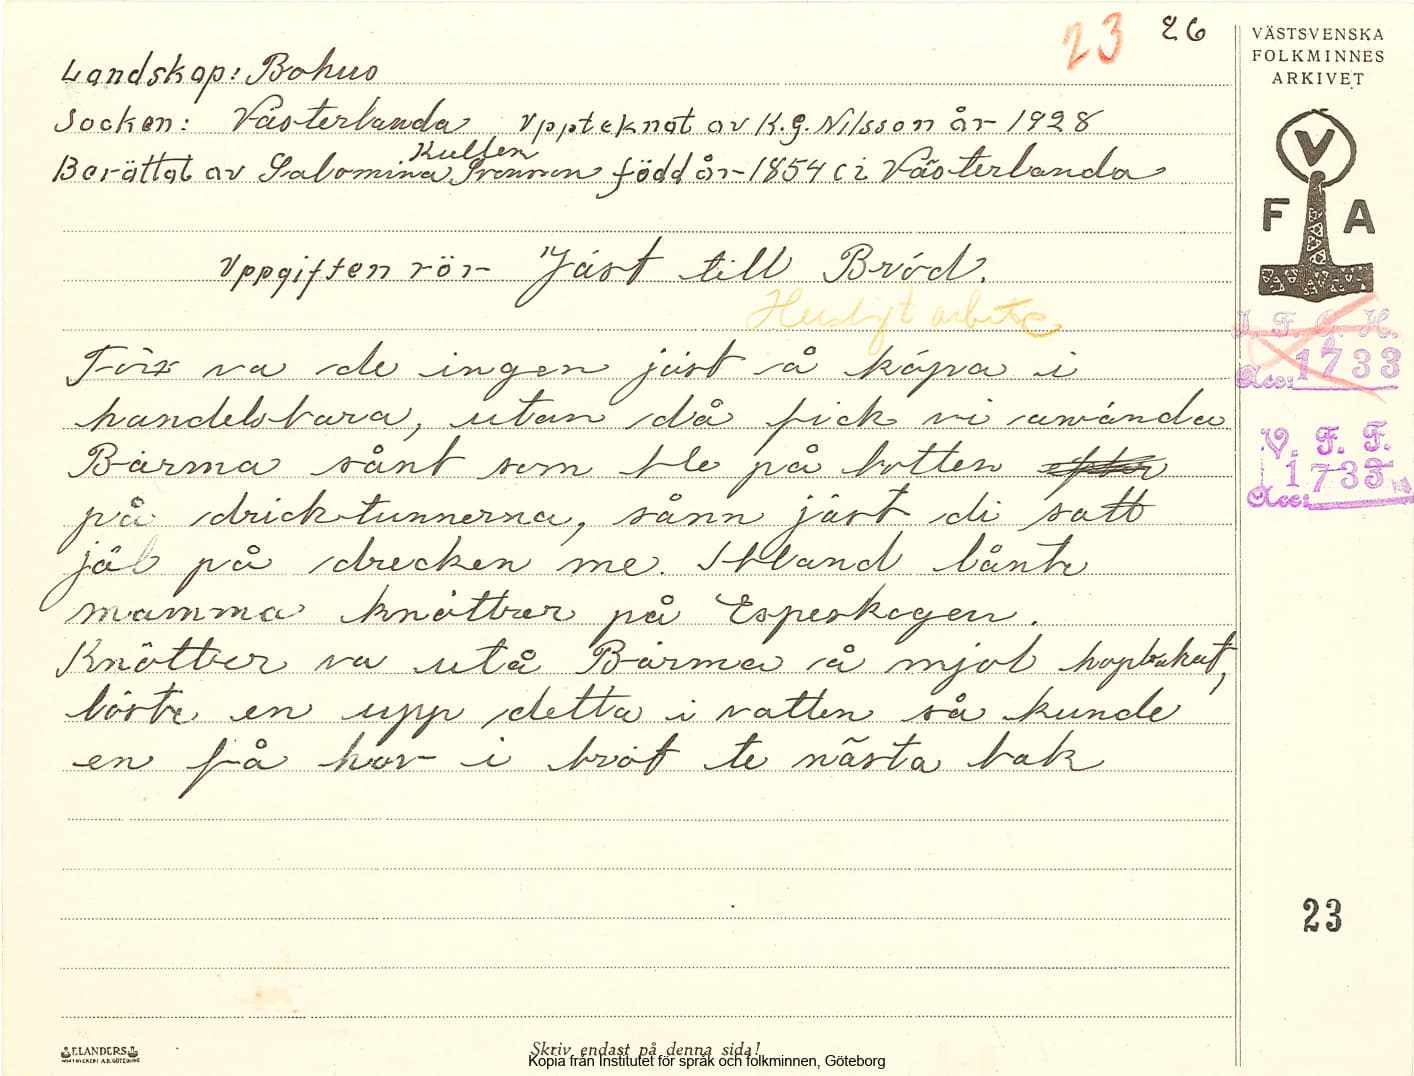 23 26
VÄSTSVENSKA
FOLKMINNES
ARKIVET
Landskap: Bohus
Socken: Västerlanda Uppteknat av K.G. Nilsson år 1928
Kullen
Berättat av Salomina född år 1854 i Västerlanda
V
F A
Uppgiften rör "Jäst till Bröd.
Husligt arbete
I. F. G. H.
Acc: 1733
Förr va de ingen jäst å köpa i
handelsbara, utan då fick vi använda
Bärma sånt som ble på botten
V. F. F.
Acc: 1733
på dricktunnerna, sånn jäst di satt
jäl på drecken me. Ibland lånte
mamma knötter på Espeskogen.
Knötter va utå Bärma å mjöl hopbakat,
löste en upp detta i vatten så kunde
en få hov i bröt te nästa bak
23
ELANDERS
Skriv endast på denna sida!
Kopia från Institutet för språk och folkminnen, Göteborg